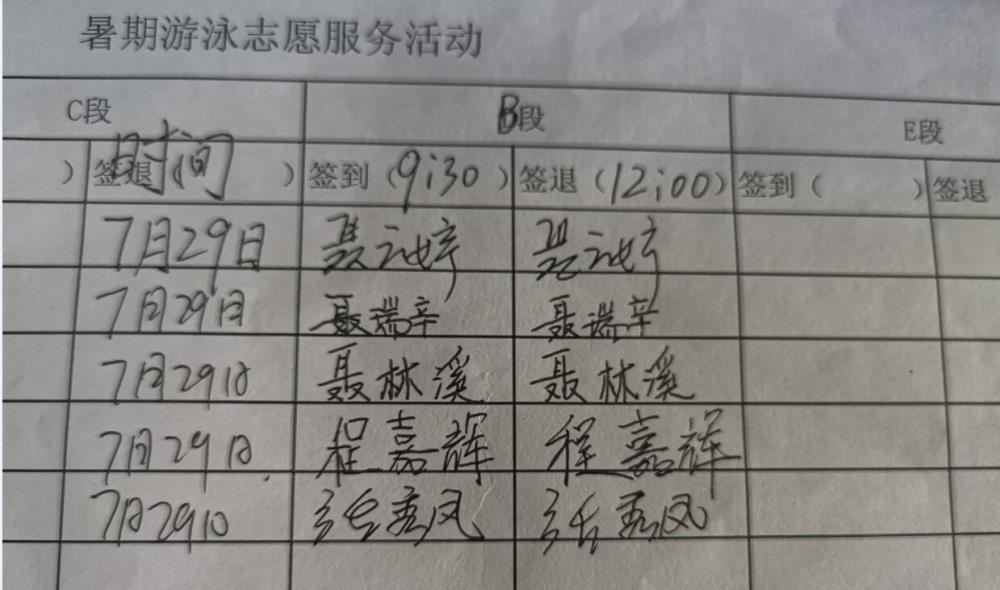 暑期游泳志愿服务活动
C段 B段 E段
) 签退 时间 ) 签到 (9:30) 签退 (12:00) 签到 ( ) 签退
7月29日 聂云婷 聂云婷
7月29日 聂瑞辛 聂瑞辛
7月29日 聂林溪 聂林溪
7月29日 程嘉辉 程嘉辉
7月29日 张秀凤 张秀凤